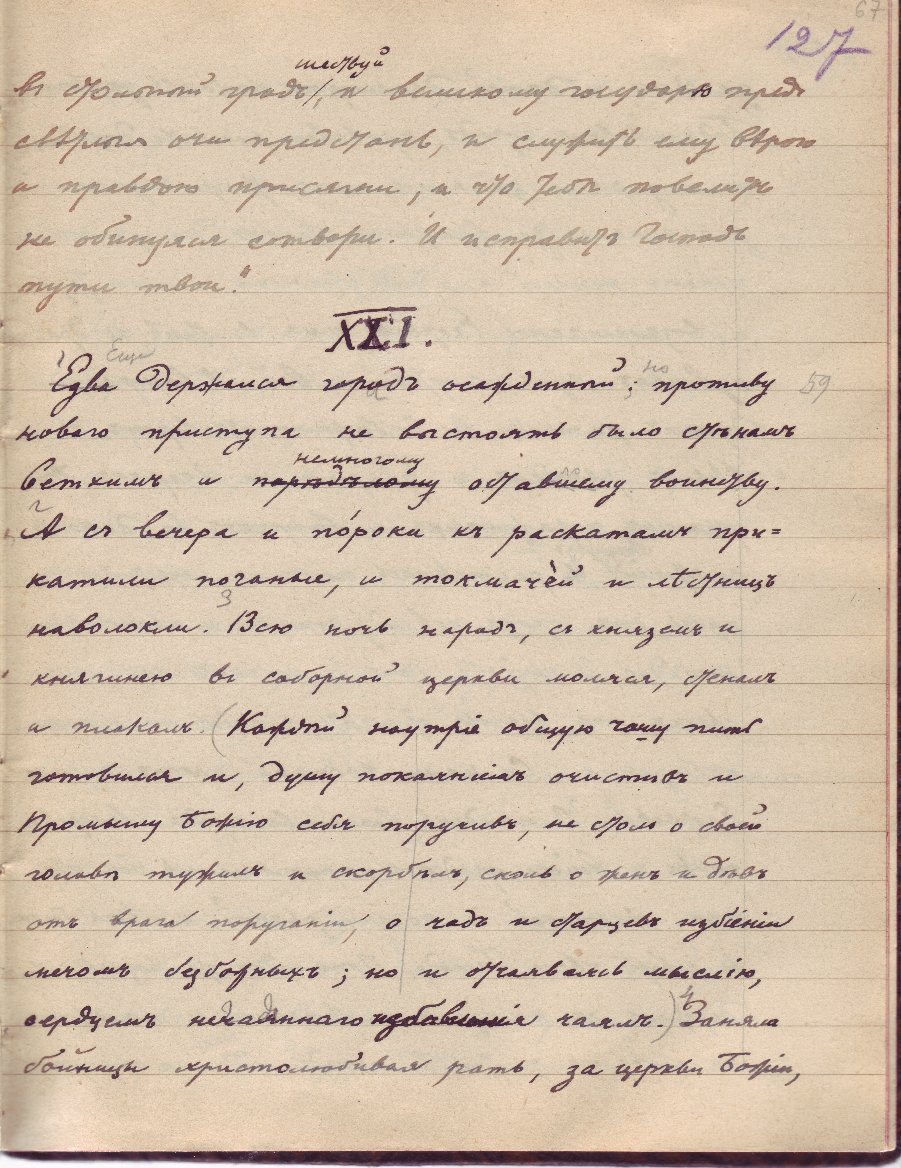 67
127
шествуй
въ стольный градъ, и великому государю предъ
свѣтлыя очи предстань, и служить ему вѣрою
и правдою присягни; и что тебѣ повелитъ
не обинуяся сотвори. И исправитъ Господь
пути твои."
XXI.
Еще
Едва держался городъ осажденный: противу
но
59
новаго приступа не выстоять было стѣнамъ
немногому
ветхимъ и порѣдѣлому оставшему воинству.
2
А съ вечера и по́роки къ раскатамъ при=
катили поганые, и токмачей и лѣстницъ
3
наволокли. Всю ночь народъ, съ княземъ и
княгинею въ соборной церкви молчся, стеналъ
и плакалъ. (Каждый наутріе общую чашу пить
готовился и, душу покаяніемъ очистивъ и
Промыслу Божію себя поручивъ, не столь о своей
головѣ тужилъ и скорбѣлъ, сколь о женъ и дѣвъ
отъ врага поруганіи, о чадъ и старцевъ избіеніи
мечомъ безборныхъ; но и отчаяваясь мыслію,
4
сердцемъ нечаяннаго избавленія чаялъ.) Заняла
бойницы христолюбивая рать, за церкви Божіи,